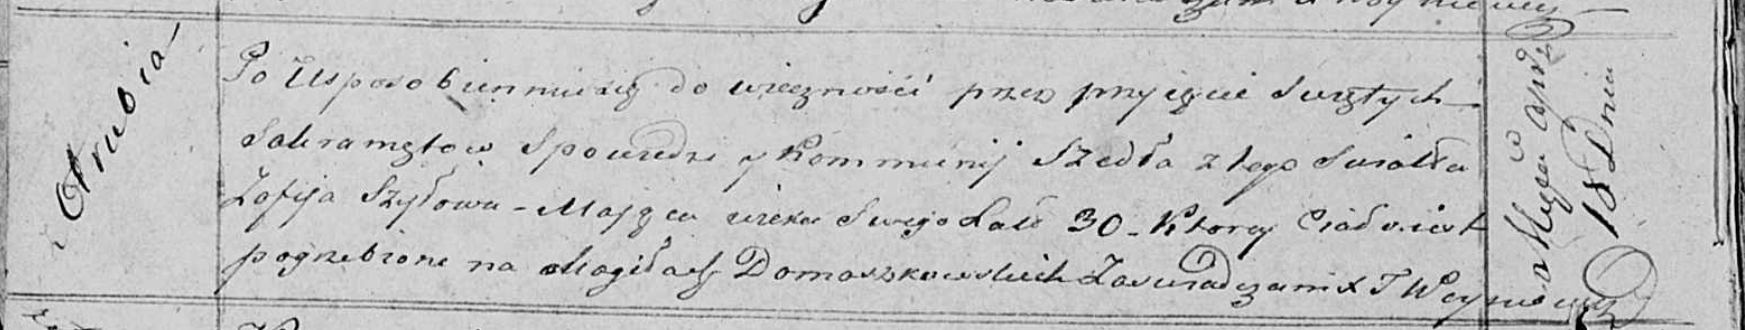 Otrubia
Po Usposobienniusię do wieczności przez przyięcie Swiętych
Sakramętow Spowiedzi y Kommunij Szedła z tego Swiatła
Zofija Szyłowa - Mająca wieku Swego Latt 30 - Ktorey Ciało iest
pogrzebione na Mogiłach Domaszkowskich Zaswiadczam X J Woyniewicz
w
18 Dnia